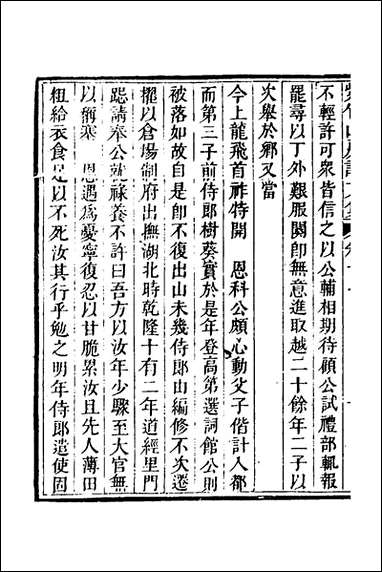 不輕許可衆皆信之以公輔相期待顧公試禮部輒報
罷尋以丁外艱服闋卽無意進取越二十餘年二子以
次舉於鄉又當
今上龍飛首祚特開　恩科公頗心動父子偕計入都
而第三子前侍郎樹葵實於是年登高第選詞館公則
被落如故自是卽不復出山未幾侍郎由編修不次遷
擢以倉場制府出撫湖北時乾隆十有二年道經里門
跽請奉公就祿養不許曰吾方以汝年少驟至大官無
以稱塞　恩遇爲憂寧復忍以甘脆累汝且先人薄田
租給衣食足以不死汝其行乎勉之明年侍郎遣使固